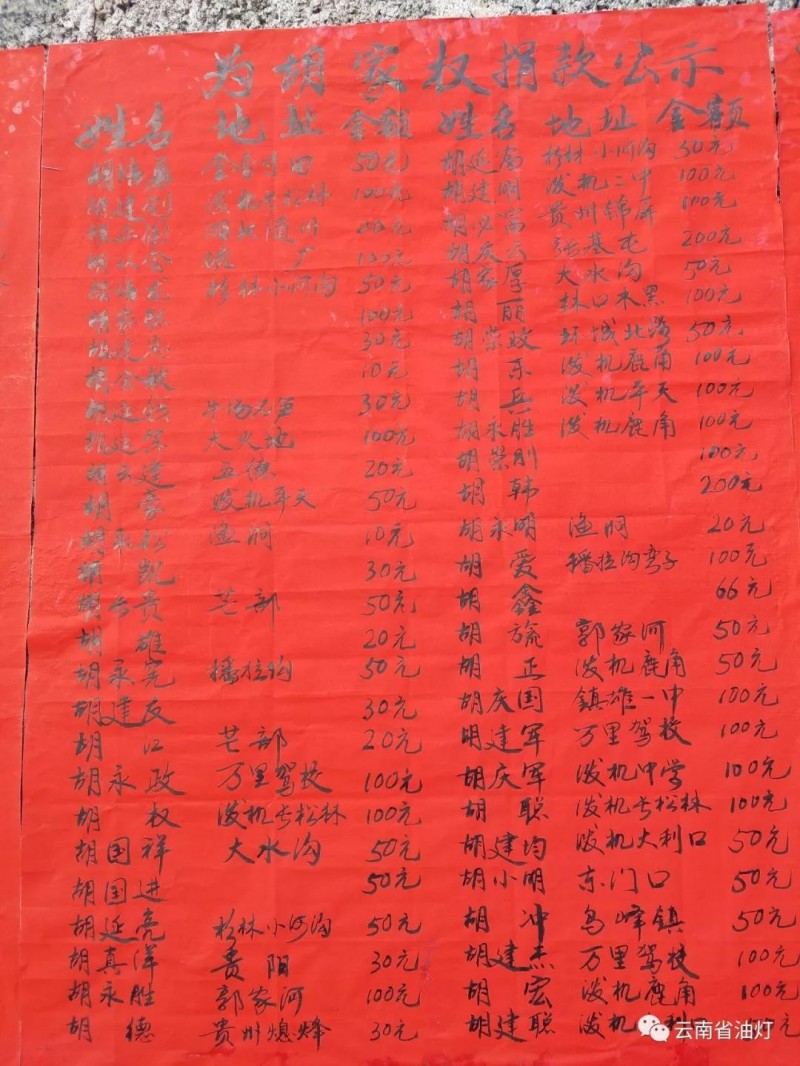 为胡家权捐款公示
姓名 地址 金额 姓名 地址 金额
50元 胡延高 杉林小河沟 50元
100元 胡建明 泼机二中 100元
贵州锦屏 100元
厂 100元 胡庆云 200元
杉林小河沟 50元 胡家厚 大水沟 50元
100元 胡丽 林口木黑 100元
30元 胡荣政 环城北路 50元
10元 胡东 泼机鹿角 100元
30元 胡兵 泼机弄天 100元
大火地 100元 胡永胜 泼机鹿角 100元
五德 20元 胡荣刚 100元
胡豪 泼机弄天 50元 胡韩 200元
渔洞 10元 胡永明 渔洞 20元
胡凯 30元 胡爱 播拉沟弯子 100元
胡长贵 芒部 50元 胡鑫 66元
胡雄 20元 胡旒 郭家河 50元
胡永完 播拉沟 50元 胡正 泼机鹿角 50元
胡建友 30元 胡庆国 镇雄一中 100元
胡江 芒部 20元 胡建军 万里驾校 100元
胡永政 万里驾校 100元 胡庆军 泼机中学 100元
胡权 泼机长松林 100元 胡聪 泼机长松林 100元
胡国祥 大水沟 50元 胡建均 泼机大利口 50元
胡国进 50元 胡小明 东门口 50元
胡延亮 杉林小河沟 50元 胡冲 乌峰镇 50元
胡真洋 贵阳 30元 胡建杰 万里驾校 100元
胡永胜 郭家河 100元 胡宏 泼机鹿角 100元
胡德 贵州熄烽 30元 胡建聪 泼机
云南省油灯